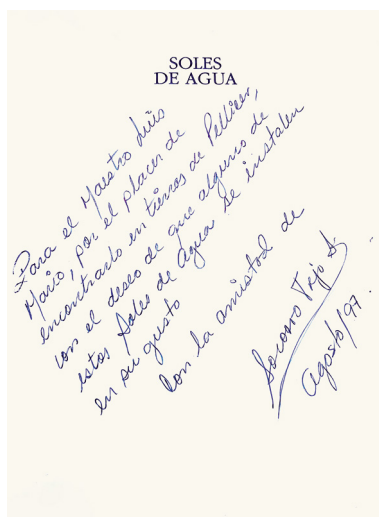 SOLES
DE AGUA
Para el Maestro Luis
Mario, por el placer de
encontrarlo en tierras de Pellicer,
con el deseo de que alguno de
estos Soles de Agua se instalen
en su gusto
Con la amistad de
Socorro Trejo S.
Agosto/97.